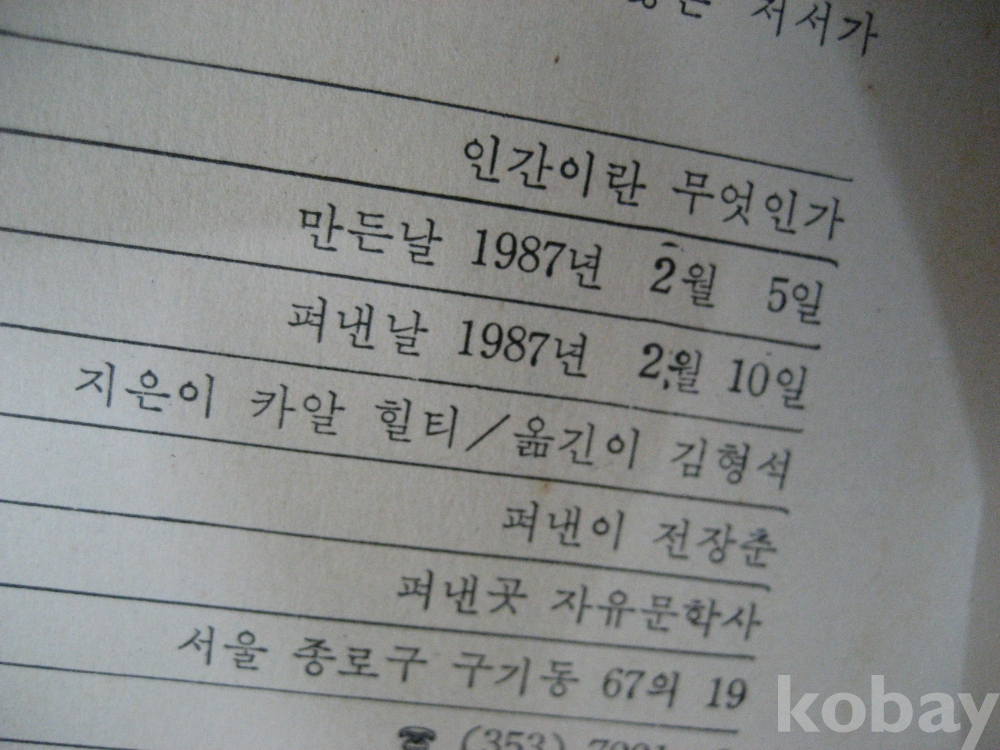 저서가
인간이란 무엇인가
만든날 1987년 2월 5일
펴낸날 1987년 2월 10일
지은이 카알 힐티/옮긴이 김형석
펴낸이 전장춘
펴낸곳 자유문학사
서울 종로구 구기동 67의 19
☎ (353)
kobay